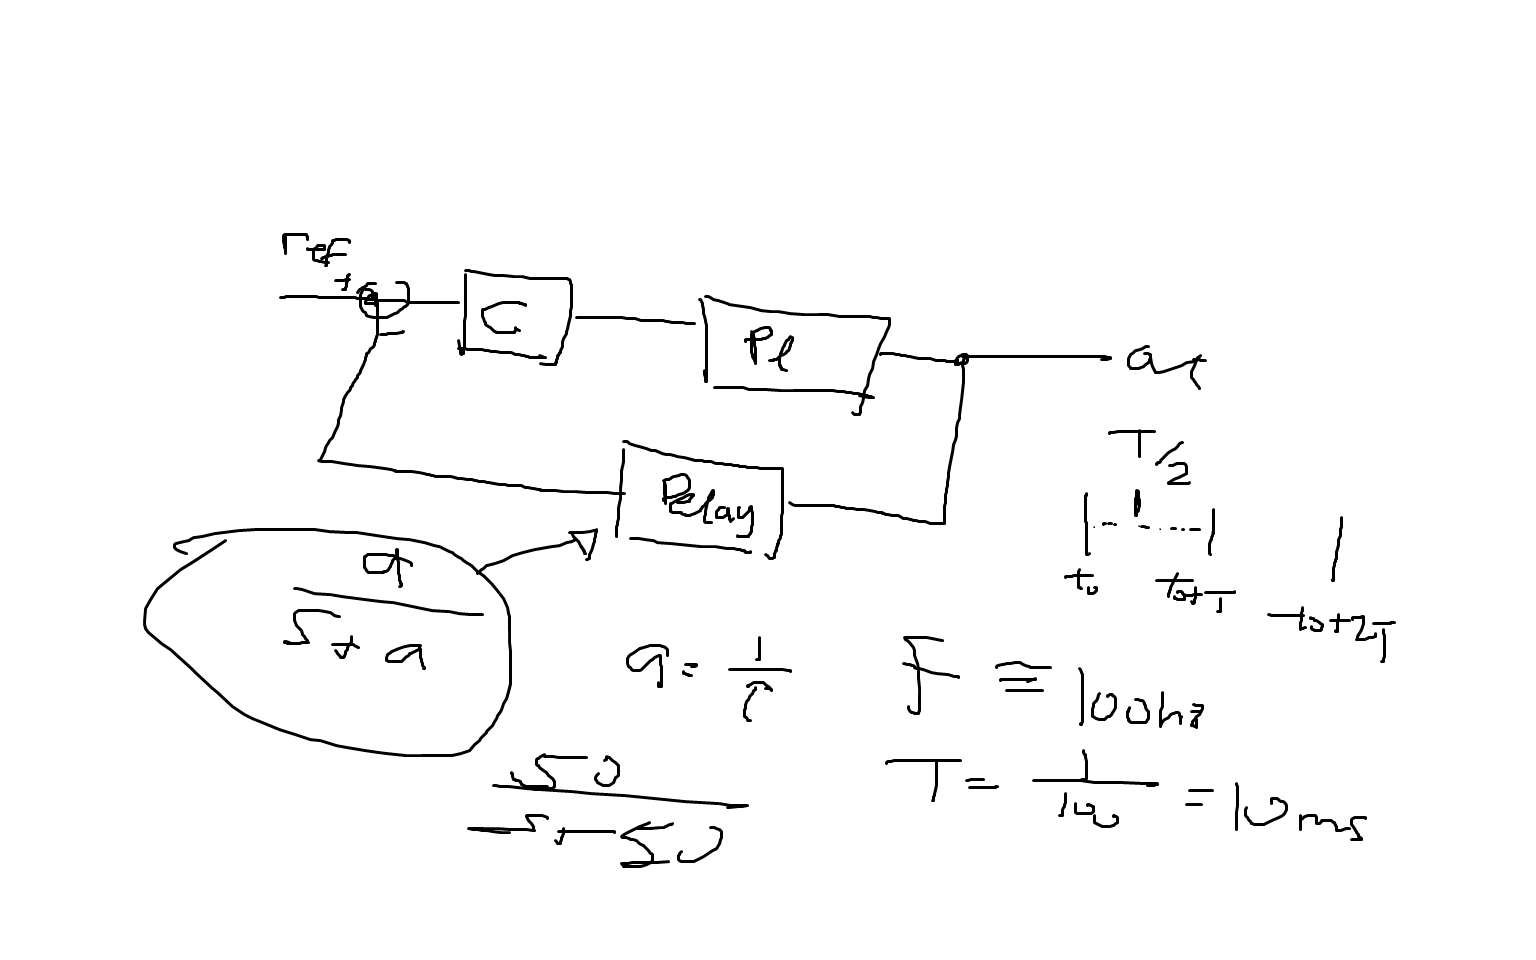 ref
+
C
Pl
-
Delay
T/2
t0 t0+T t0+2T
a
s+a
a = 1/τ
F ≅ 100hz
50
s+50
T = 1/100 = 10ms